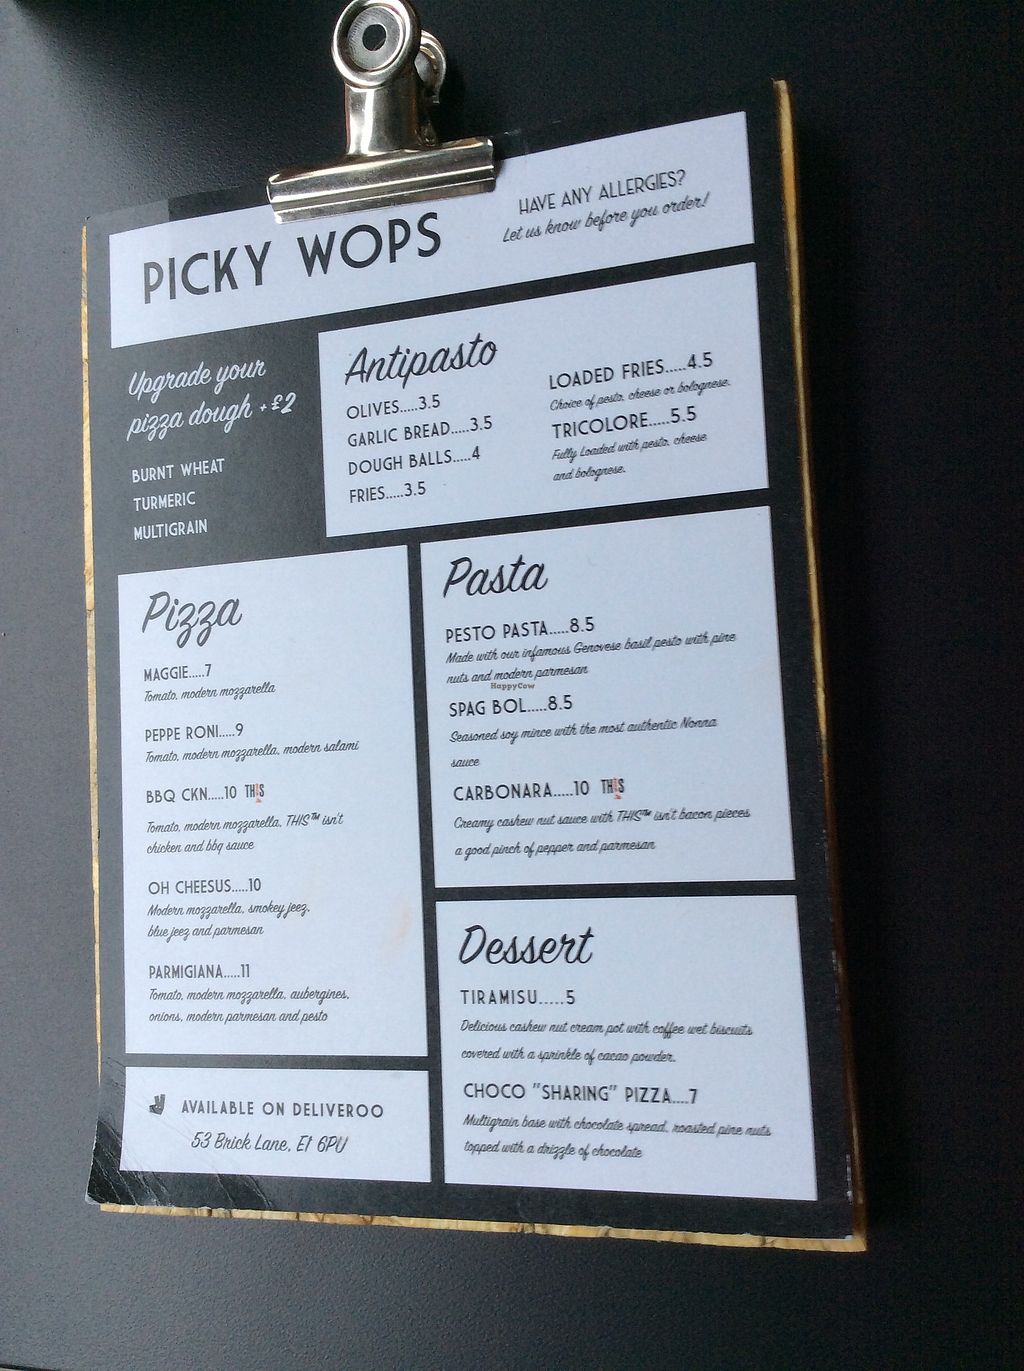 PICKY WOPS
HAVE ANY ALLERGIES?
Let us know before you order!
Upgrade your
pizza dough + £2
BURNT WHEAT
TURMERIC
MULTIGRAIN
Antipasto
OLIVES.....3.5
GARLIC BREAD.....3.5
DOUGH BALLS.....4
FRIES.....3.5
LOADED FRIES.....4.5
Choice of pesto, cheese or bolognese.
TRICOLORE.....5.5
Fully Loaded with pesto, cheese
and bolognese.
Pizza
MAGGIE.....7
Tomato, modern mozzarella
PEPPE RONI.....9
Tomato, modern mozzarella, modern salami
BBQ CKN.....10 TH!S
Tomato, modern mozzarella, THIS™ isn't
chicken and bbq sauce
OH CHEESUS.....10
Modern mozzarella, smokey jeez,
blue jeez and parmesan
PARMIGIANA.....11
Tomato, modern mozzarella, aubergines,
onions, modern parmesan and pesto
Pasta
PESTO PASTA.....8.5
Made with our infamous Genovese basil pesto with pine
nuts and modern parmesan
HappyCow
SPAG BOL.....8.5
Seasoned soy mince with the most authentic Nonna
sauce
CARBONARA.....10 TH!S
Creamy cashew nut sauce with THIS™ isn't bacon pieces
a good pinch of pepper and parmesan
Dessert
TIRAMISU.....5
Delicious cashew nut cream pot with coffee wet biscuits
covered with a sprinkle of cacao powder.
CHOCO "SHARING" PIZZA....7
Multigrain base with chocolate spread, roasted pine nuts
topped with a drizzle of chocolate
AVAILABLE ON DELIVEROO
53 Brick Lane, E1 6PU